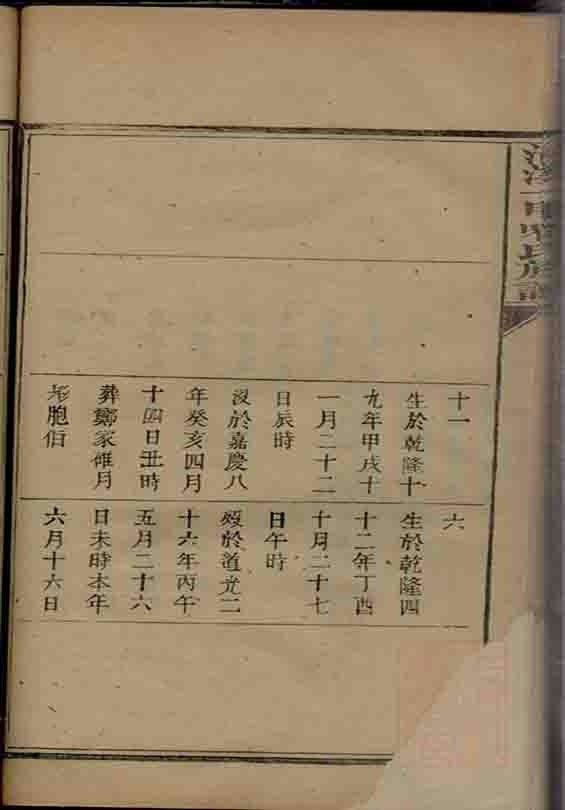 十一
生於乾隆十
九年甲戌十
一月二十二
日辰時
沒於嘉慶八
年癸亥四月
十四日丑時
葬鄭家雄月
形胞伯
六
生於乾隆四
十二年丁酉
十月二十七
日午時
歿於道光二
十六年丙午
五月二十六
日未時本年
六月十六日